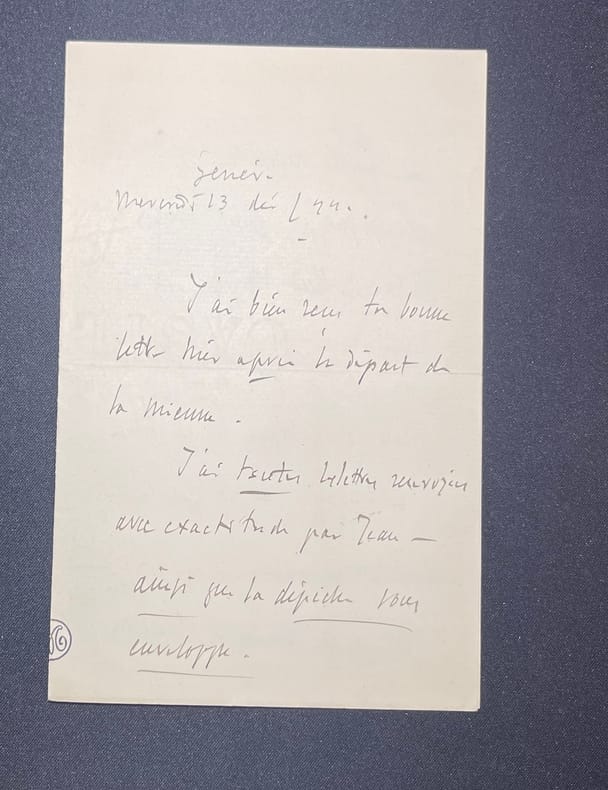 Genèv.
Mercredi 13 déc
J'ai bien reçu ta bonne
lettre hier après le départ de
la mienne.
J'ai toutes les lettres renvoyées
avec exactitude par Jean —
ainsi que la dépêche sous
enveloppe.